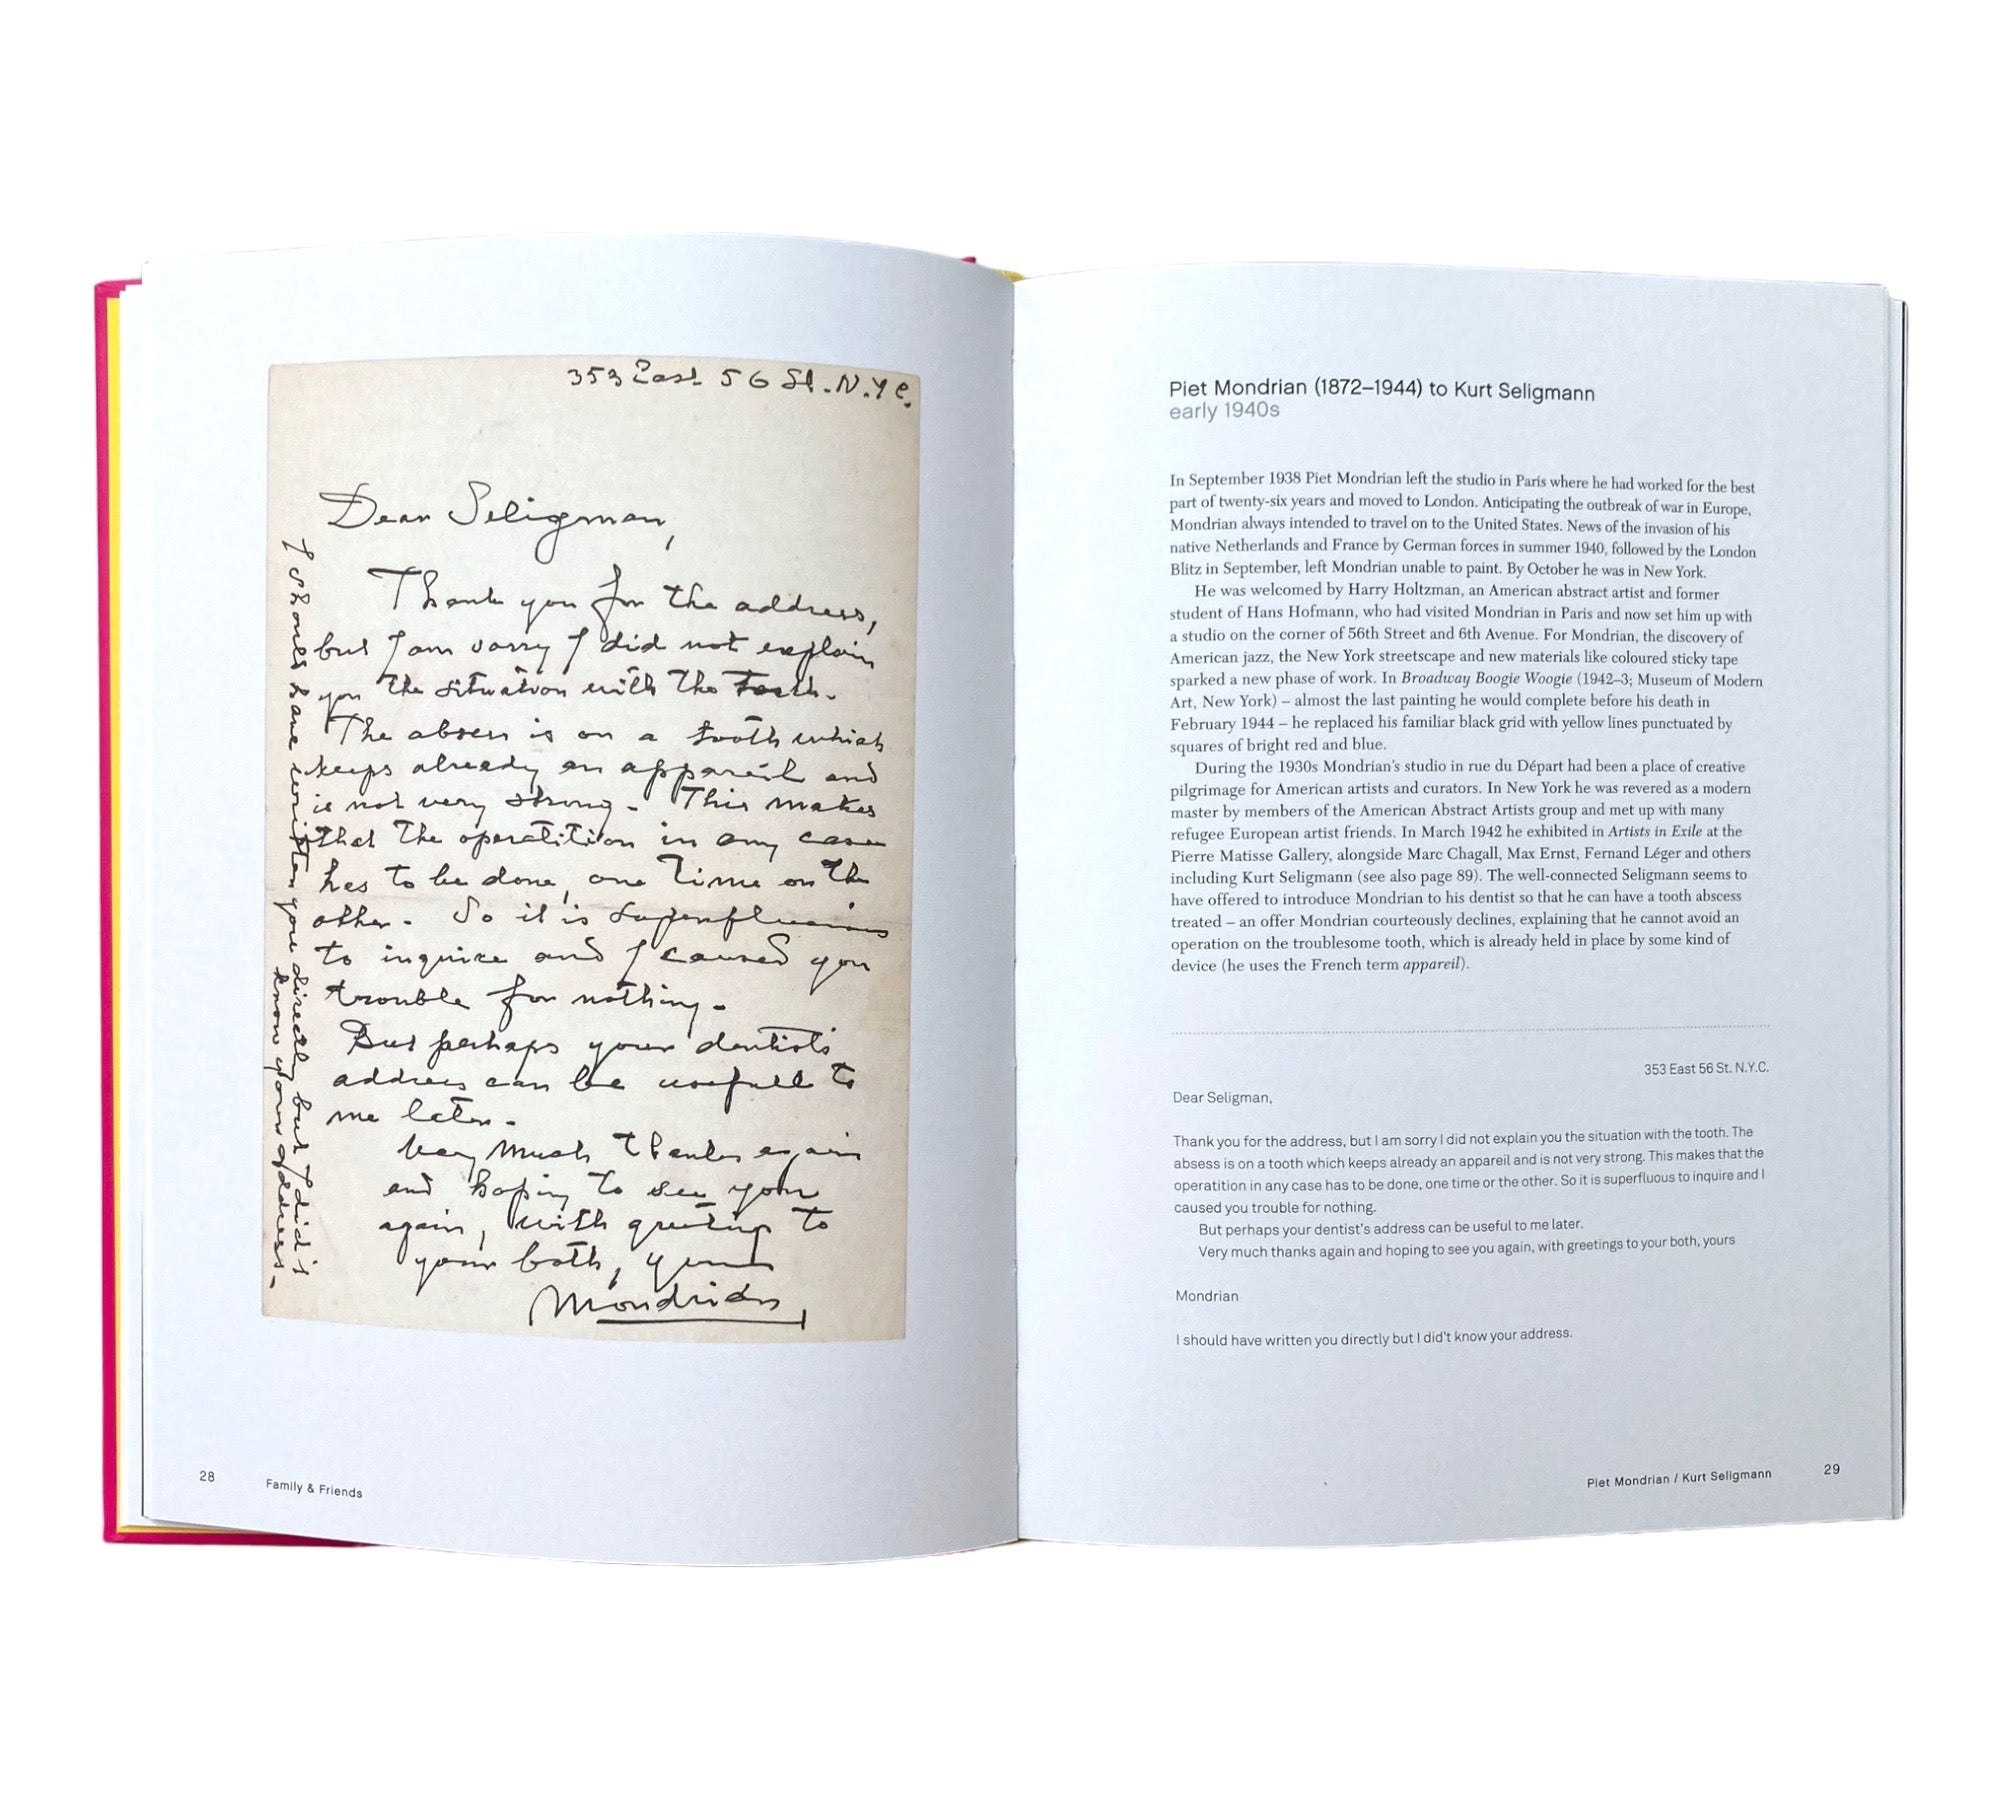 353 East 56 St. N.Y C.
Dear Seligman,
Thank you for the address,
but I am sorry I did not explain
you the situation with the tooth.
The absess is on a tooth which
keeps already an appareil and
is not very strong. This makes
that the operatition in any case
has to be done, one time or the
other. So it is superfluious
to inquire and I caused you
trouble for nothing.
But perhaps your dentist's
address can be usefull to
me later.
Very much thanks again
and hoping to see you
again, with greetings to
your both, yours
Mondrian,
I should have written you directly but I did't
know your address.
28
Family & Friends
Piet Mondrian (1872–1944) to Kurt Seligmann
early 1940s
In September 1938 Piet Mondrian left the studio in Paris where he had worked for the best
part of twenty-six years and moved to London. Anticipating the outbreak of war in Europe,
Mondrian always intended to travel on to the United States. News of the invasion of his
native Netherlands and France by German forces in summer 1940, followed by the London
Blitz in September, left Mondrian unable to paint. By October he was in New York.
He was welcomed by Harry Holtzman, an American abstract artist and former
student of Hans Hofmann, who had visited Mondrian in Paris and now set him up with
a studio on the corner of 56th Street and 6th Avenue. For Mondrian, the discovery of
American jazz, the New York streetscape and new materials like coloured sticky tape
sparked a new phase of work. In Broadway Boogie Woogie (1942–3; Museum of Modern
Art, New York) – almost the last painting he would complete before his death in
February 1944 – he replaced his familiar black grid with yellow lines punctuated by
squares of bright red and blue.
During the 1930s Mondrian's studio in rue du Départ had been a place of creative
pilgrimage for American artists and curators. In New York he was revered as a modern
master by members of the American Abstract Artists group and met up with many
refugee European artist friends. In March 1942 he exhibited in Artists in Exile at the
Pierre Matisse Gallery, alongside Marc Chagall, Max Ernst, Fernand Léger and others
including Kurt Seligmann (see also page 89). The well-connected Seligmann seems to
have offered to introduce Mondrian to his dentist so that he can have a tooth abscess
treated – an offer Mondrian courteously declines, explaining that he cannot avoid an
operation on the troublesome tooth, which is already held in place by some kind of
device (he uses the French term appareil).
353 East 56 St. N.Y.C.
Dear Seligman,
Thank you for the address, but I am sorry I did not explain you the situation with the tooth. The
absess is on a tooth which keeps already an appareil and is not very strong. This makes that the
operatition in any case has to be done, one time or the other. So it is superfluous to inquire and I
caused you trouble for nothing.
But perhaps your dentist's address can be useful to me later.
Very much thanks again and hoping to see you again, with greetings to your both, yours
Mondrian
I should have written you directly but I did't know your address.
Piet Mondrian / Kurt Seligmann
29